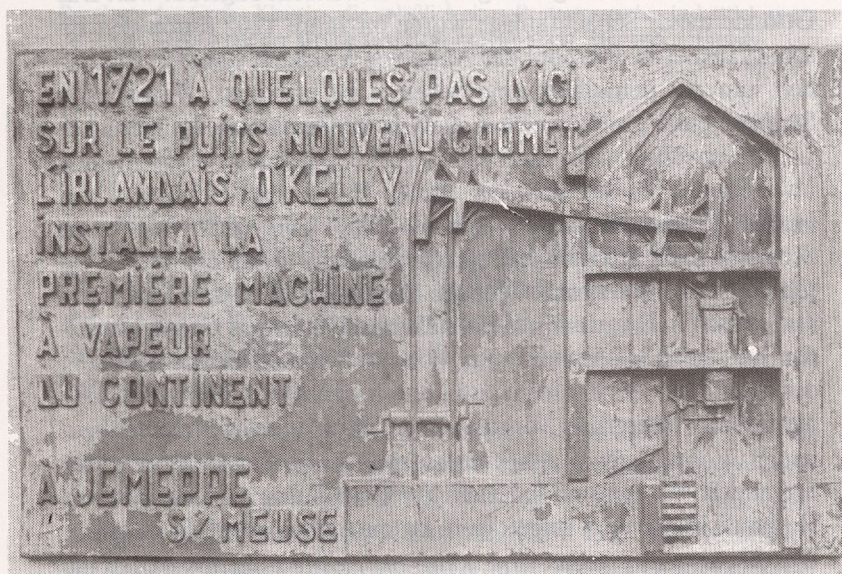 EN 1721 À QUELQUES PAS D'ICI
SUR LE PUITS NOUVEAU GROMET
L'IRLANDAIS O'KELLY
INSTALLA LA
PREMIÉRE MACHINE
À VAPEUR
DU CONTINENT
À JEMEPPE
S/MEUSE